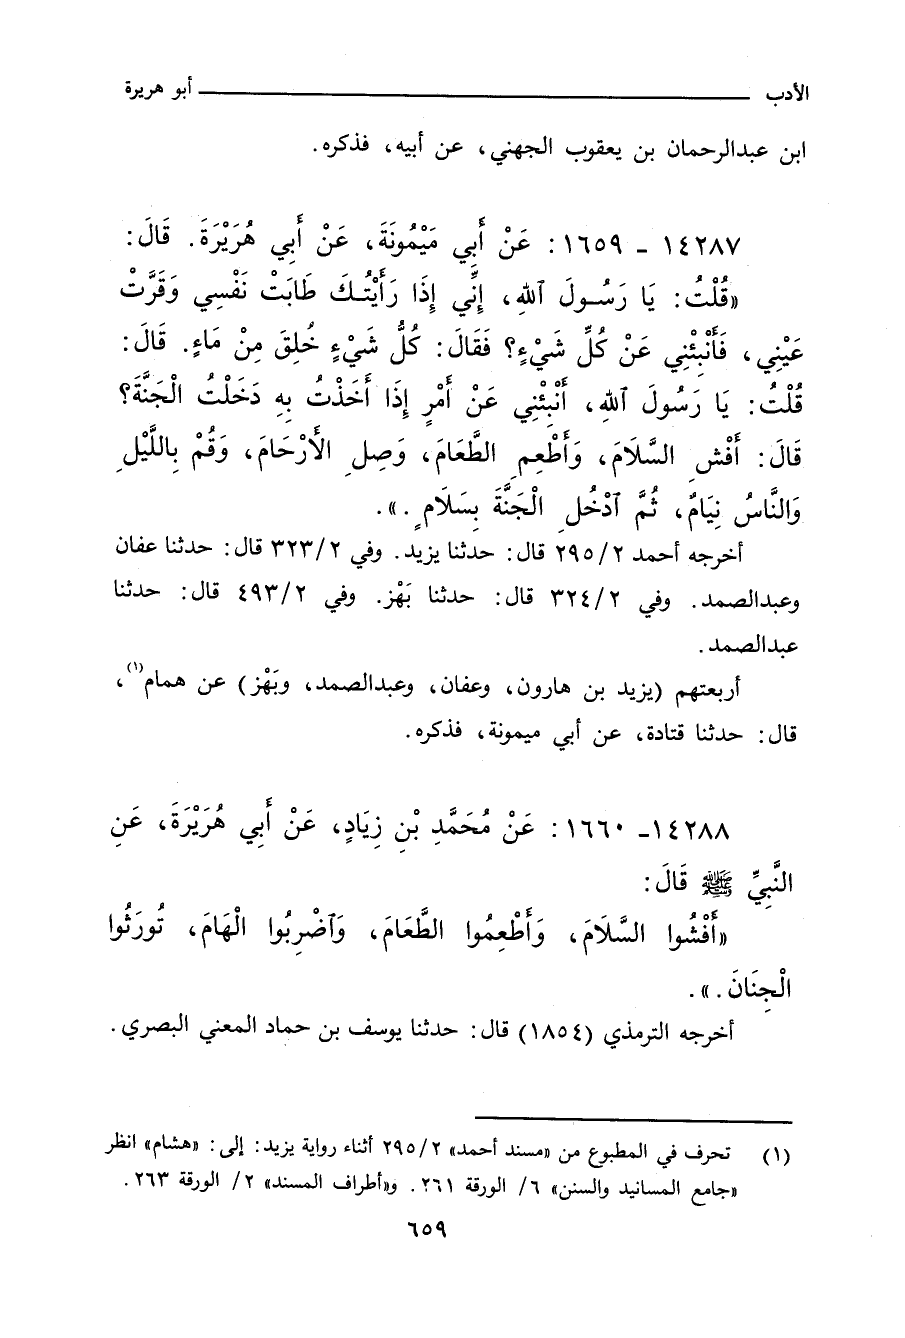 الأدب ــــــــــ أبو هريرة
ابن عبدالرحمان بن يعقوب الجهني، عن أبيه، فذكره.
١٤٢٨٧ ـ ١٦٥٩: عَنْ أَبِي مَيْمُونَةَ، عَنْ أَبِي هُرَيْرَةَ. قَالَ:
«قُلْتُ: يَا رَسُولَ ٱللهِ، إِنِّي إِذَا رَأَيْتُكَ طَابَتْ نَفْسِي وَقَرَّتْ
عَيْنِي، فَأَنْبِئْنِي عَنْ كُلِّ شَيْءٍ؟ فَقَالَ: كُلُّ شَيْءٍ خُلِقَ مِنْ مَاءٍ. قَالَ:
قُلْتُ: يَا رَسُولَ ٱللهِ، أَنْبِئْنِي عَنْ أَمْرٍ إِذَا أَخَذْتُ بِهِ دَخَلْتُ الْجَنَّةَ؟
قَالَ: أَفْشِ السَّلَامَ، وَأَطْعِمِ الطَّعَامَ، وَصِلِ الأَرْحَامَ، وَقُمْ بِاللَّيْلِ
وَالنَّاسُ نِيَامٌ، ثُمَّ ٱدْخُلِ الْجَنَّةَ بِسَلَامٍ.».
أخرجه أحمد ٢٩٥/٢ قال: حدثنا يزيد. وفي ٣٢٣/٢ قال: حدثنا عفان
وعبدالصمد. وفي ٣٢٤/٢ قال: حدثنا بَهْز. وفي ٤٩٣/٢ قال: حدثنا
عبدالصمد.
أربعتهم (يزيد بن هارون، وعفان، وعبدالصمد، وبَهْز) عن همام(١)،
قال: حدثنا قتادة، عن أبي ميمونة، فذكره.
١٤٢٨٨ـ ١٦٦٠: عَنْ مُحَمَّدِ بْنِ زِيَادٍ، عَنْ أَبِي هُرَيْرَةَ، عَنِ
النَّبِيِّ ﷺ قَالَ:
«أَفْشُوا السَّلَامَ، وَأَطْعِمُوا الطَّعَامَ، وَٱضْرِبُوا الْهَامَ، تُورَثُوا
الْجِنَانَ.».
أخرجه الترمذي (١٨٥٤) قال: حدثنا يوسف بن حماد المعني البصري.
(١) تحرف في المطبوع من «مسند أحمد» ٢٩٥/٢ أثناء رواية يزيد: إلى: «هشام» انظر
«جامع المسانيد والسنن» ٦/ الورقة ٢٦١. و«أطراف المسند» ٢/ الورقة ٢٦٣.
٦٥٩